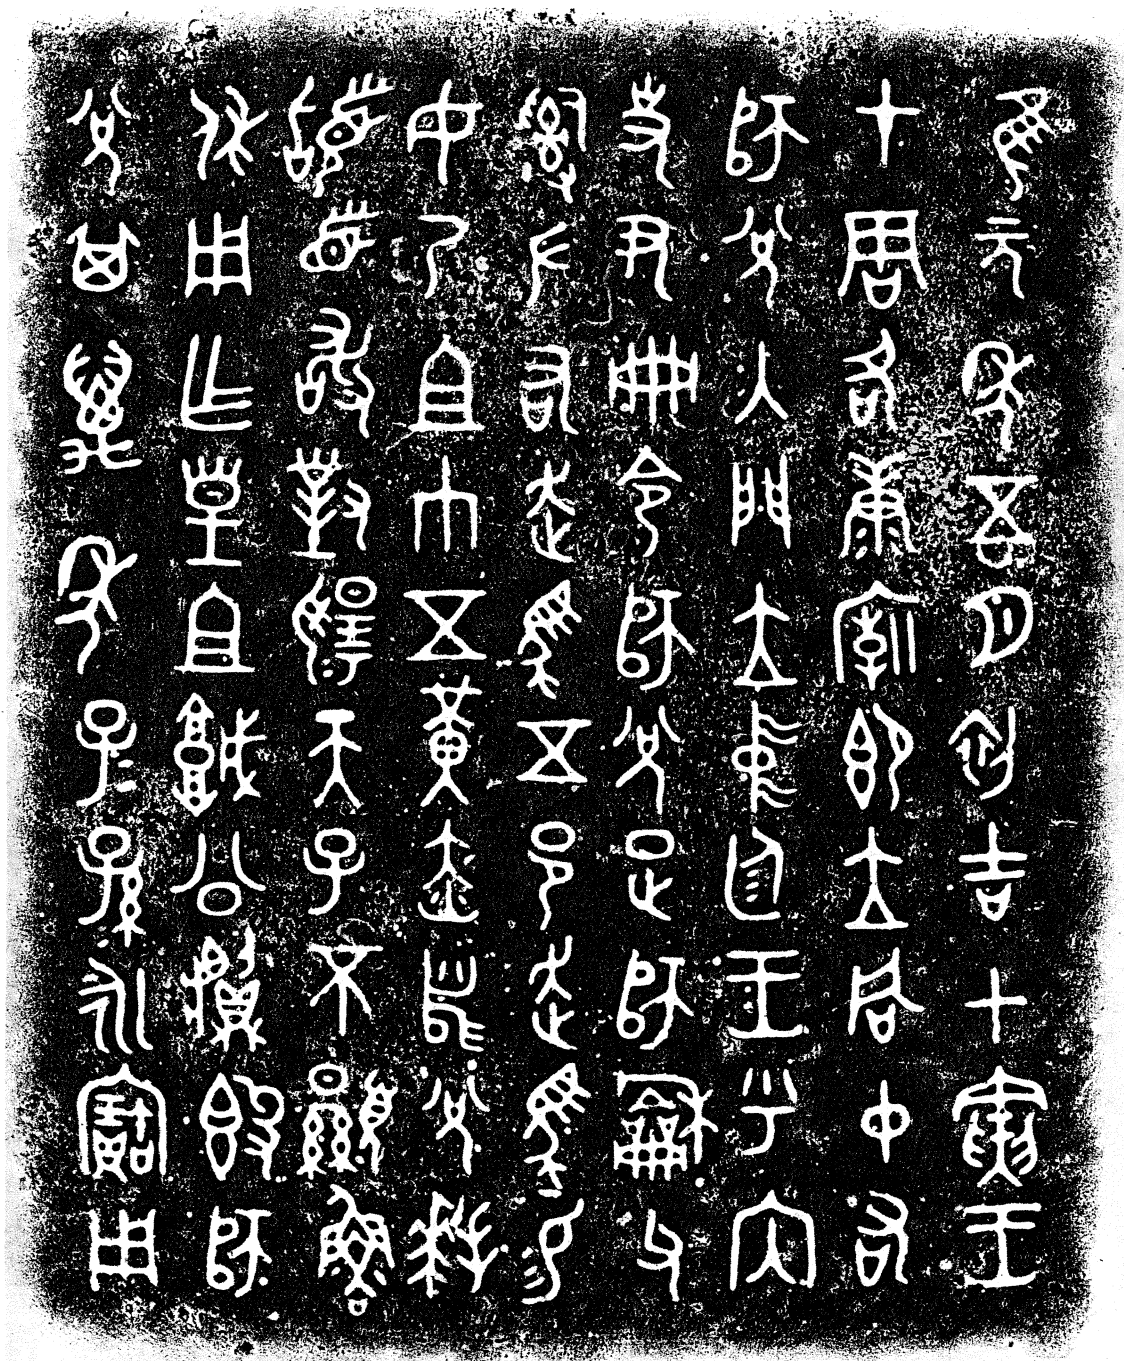 隹元年五月初吉甲寅王
才周各康廟即立同中右
師兌入門立中廷王乎內
史尹冊令師兌疋師龢父
𤔲左右走馬五邑走馬易
女乃且巾五黃赤舄兌拜
𩒨首敢對揚天子不顯魯
休用乍皇且城公䵼𣪘師
兌其萬年子=孫=永寶用